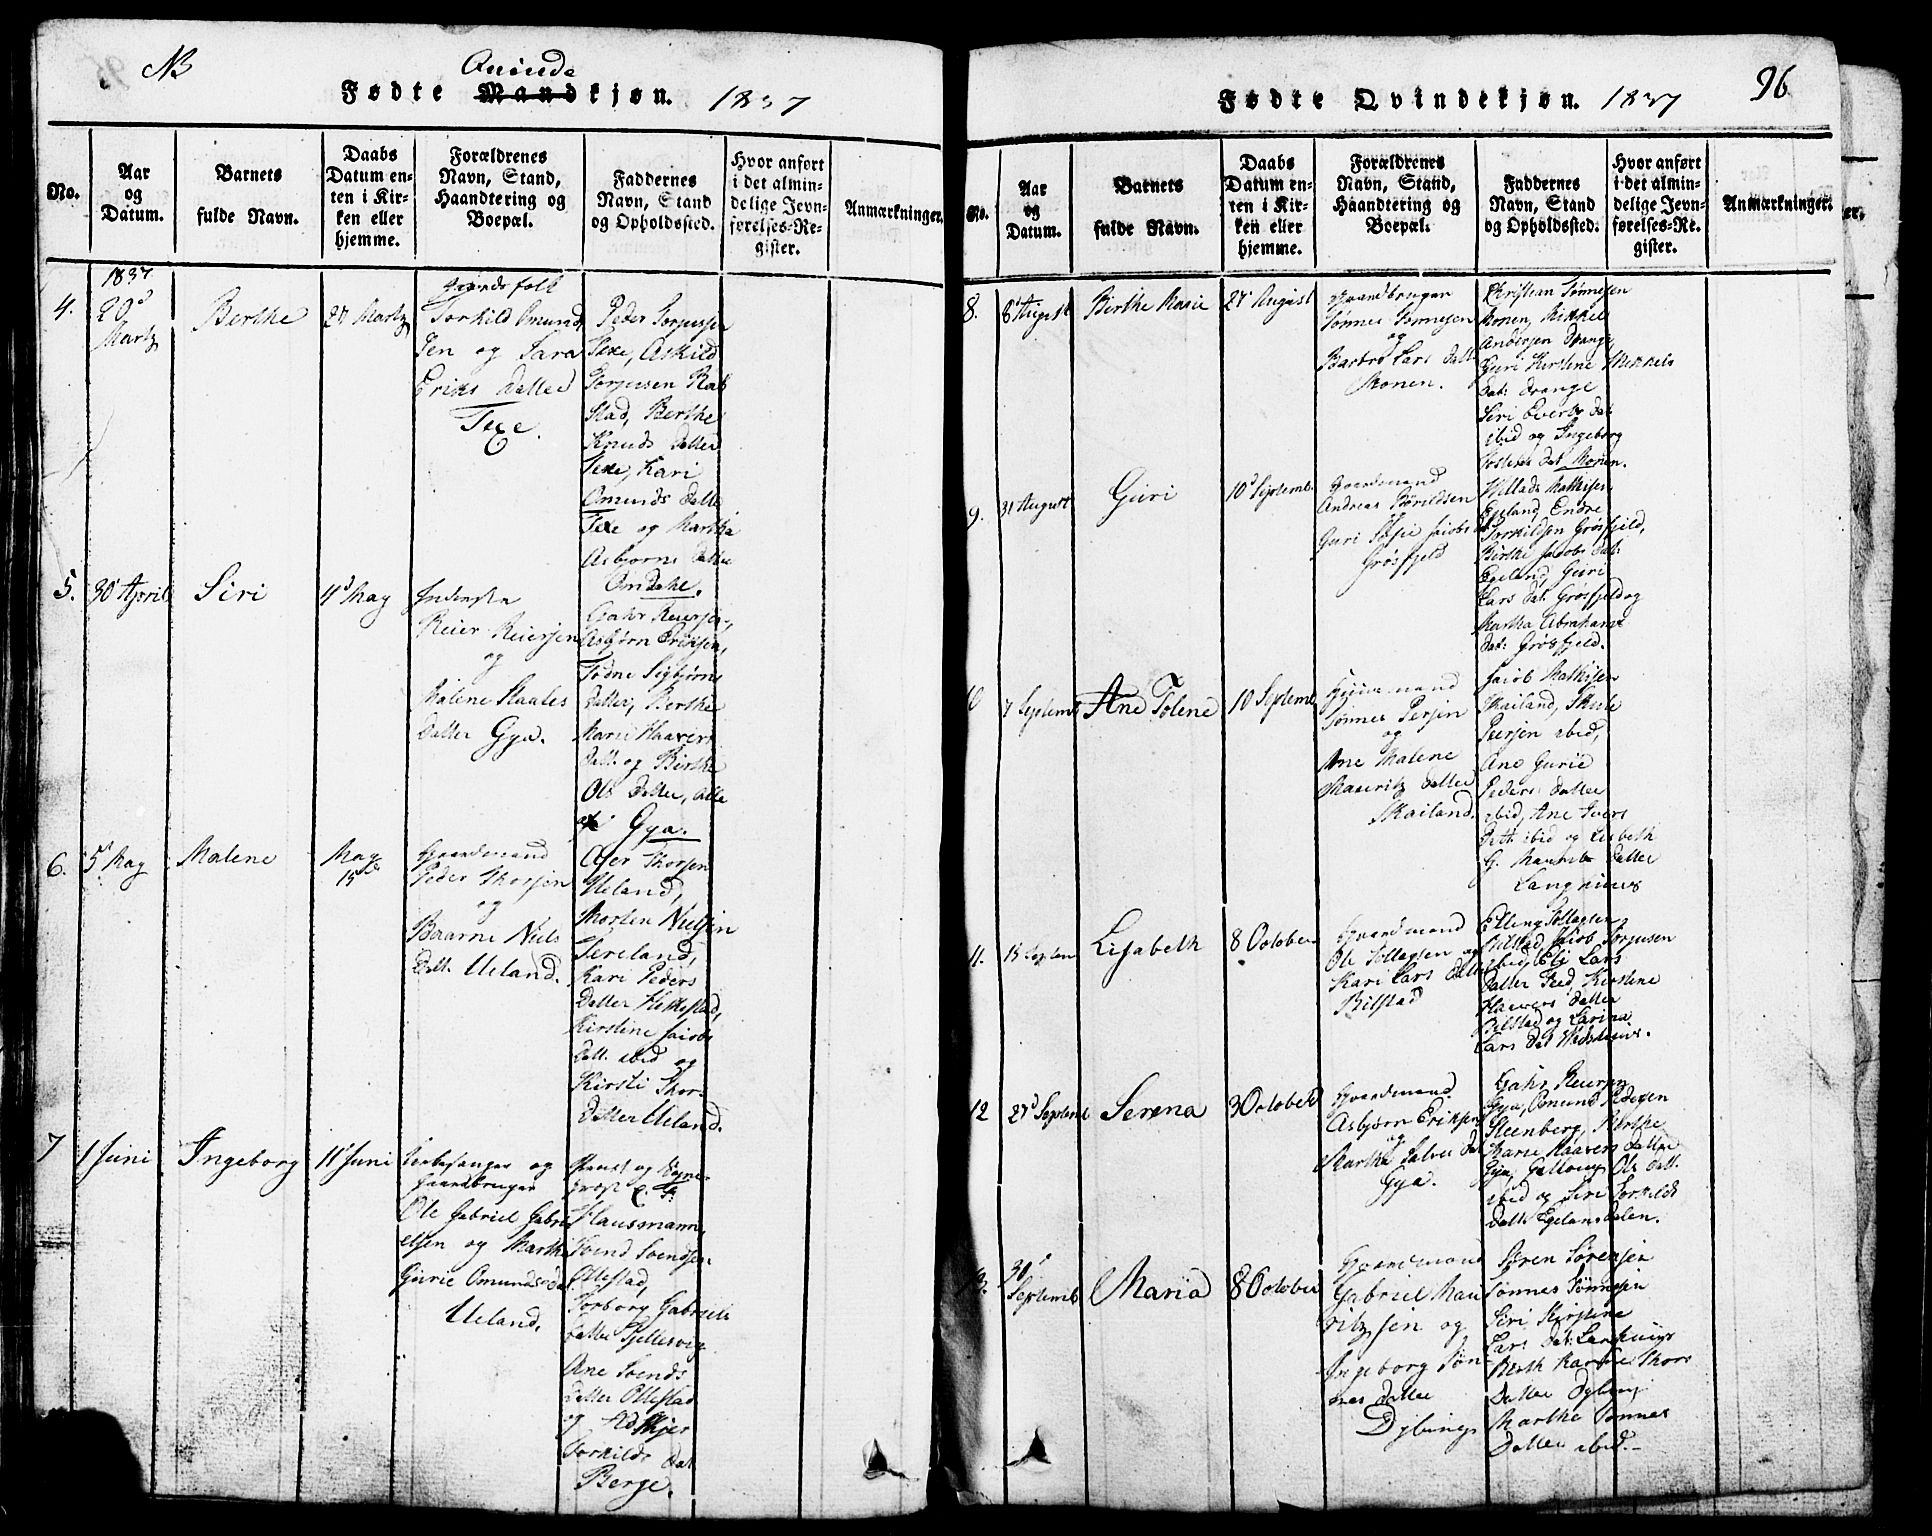 NB
Qvinde
Fødte Mandkjøn. 1837
No.
Aar
og
Datum.
Barnets
fulde Navn.
Daabs
Datum en-
ten i Kir-
ken eller
hjemme.
Forældrenes
Navn, Stand,
Haandtering og
Boepæl.
Faddernes
Navn, Stand
og Opholdssted.
Hvor anført
i det almin-
delige Jevn-
førelses-Re-
gister.
Anmærkninger.
4.
1837
20d
Martz
Berthe
27 Martz
Gaardsfolk
Torkild Omund
sen og Sara
Eriks Datter
Texe.
Peder Torgussen
Texe, Askild
Torgusen Rob
stad, Berthe
Knuds Datter
Texe, Kari
Omunds Datte
Texe og Martha
Asbjørns Datter
Omdahl.
5.
30 April
Siri
4d May
Reier Reiersen
og
Malene Staales
Datter Gya.
Gahr Reiersen,
Asbjørn Eriksen,
Todne Sigbjørns
Datter, Berthe
Marie Haavers
Datt. og Birthe
Ols Datter, alle
Gya.
6.
5d May
Malene
May
15de
Gaardmand
Peder Thorsen
og
Baarne Niels
Datt. Ueland.
Ofer Thorsen
Ueland,
Morten Nielsen
Sereland,
Kari Peders
Datter Hekkestad,
Kirstine Jacobs
Datt. ibid og
Kirsti Thor-
Datter Ueland.
7
1 Juni
Ingeborg
11d Juni
Kirkesanger og
Gaardbruger
Ole Gabriel Gabri
elsen og Marthe
Gurie Omunds Dat
Ueland.
Provst og Sogne-
Præst
Hausmann,
Svend Svendsen
Ollestad,
Torborg Gabriels
Datter Fjellesvig
Ane Svends
Datter Ollestad
og
Torkilds Dat
Berge.
Fødte Qvindekjøn. 1837
96
No.
Aar
og
Datum.
Barnets
fulde Navn.
Daabs
Datum en-
ten i Kir-
ken eller
hjemme.
Forældrenes
Navn, Stand,
Haandtering og
Boepæl.
Faddernes
Navn, Stand
og Opholdssted.
Hvor anført
i det almin-
delige Jevn-
førelses-Re-
gister.
Anmærkninger.
8.
6 August
Birthe Marie
27 August
Gaardbruger
Tønnes Tønnesen
og
Barbro Lars Datt
Monen.
Christian Tønnesen
Monen, Mikkel
Andersen Drange,
Guri Kirstine Mikkels
Dat. Drange
Siri Everts Dat
ibid og Ingeborg
Dat Monen.
9.
31 August
Guri
10d Septemb.
Gaardmand
Andreas Børildsen
Guri Sofie Jacobs D
Grøsfjeld
Willads Mathisen
Egeland Endre
Torkildsen Grøsfjeld,
Birthe Jacobs Dat.
Egeland Guri
Lars Dat. Grøsfjeld og
Martha Abrahams
Dat. Grøsfjeld.
10
7 Septemb
Ane Tolene
10 Septemb
Tønnes Persen
og
Ane Malene
Mauritz Datter
Skailand.
Jacob Mathisen
Skailand, Skule
Peersen ibid,
Ane Gurie
Peders Datter
ibid, Ane Ivers
Datt. ibid og Lisbeth
G. Datter
11.
15 Septem
Lisabeth
8 October
Gaardmand
Ole Tollagsen og
Kari Lars Datter
Bilstad
Elling Tollagsen
Bilstad, Jacob Torgusen
ibid, Eli Lars
Datter Kirstine
Haavers Datter
Bilstad og Sarina
Lars Dat
12
27d Septemb
Serena
3 October
Gaardmand
Asbjørn Eriksen
og
Martha Salve Dat
Gya.
Gahr Reiersen
Gya, Omund Pedersen
Steenberg, Berthe
Marie Haavers Datter
Gya, Ols Datt.
ibid og Siri Torkilds
Datt. Egelandsdalen.
13.
30d
Septemb
Maria
8 October
Gaardmand
Gabriel Mau
ritzsen og
Ingeborg Tøn-
nes Datter
Dybing
Søren Sørensen
Tønnes Tønnesen
Siri Kirstine
Lars Dat.
Berth Karine Thors
Datter Dybing
Marthe Tønnes
Datter ibid.